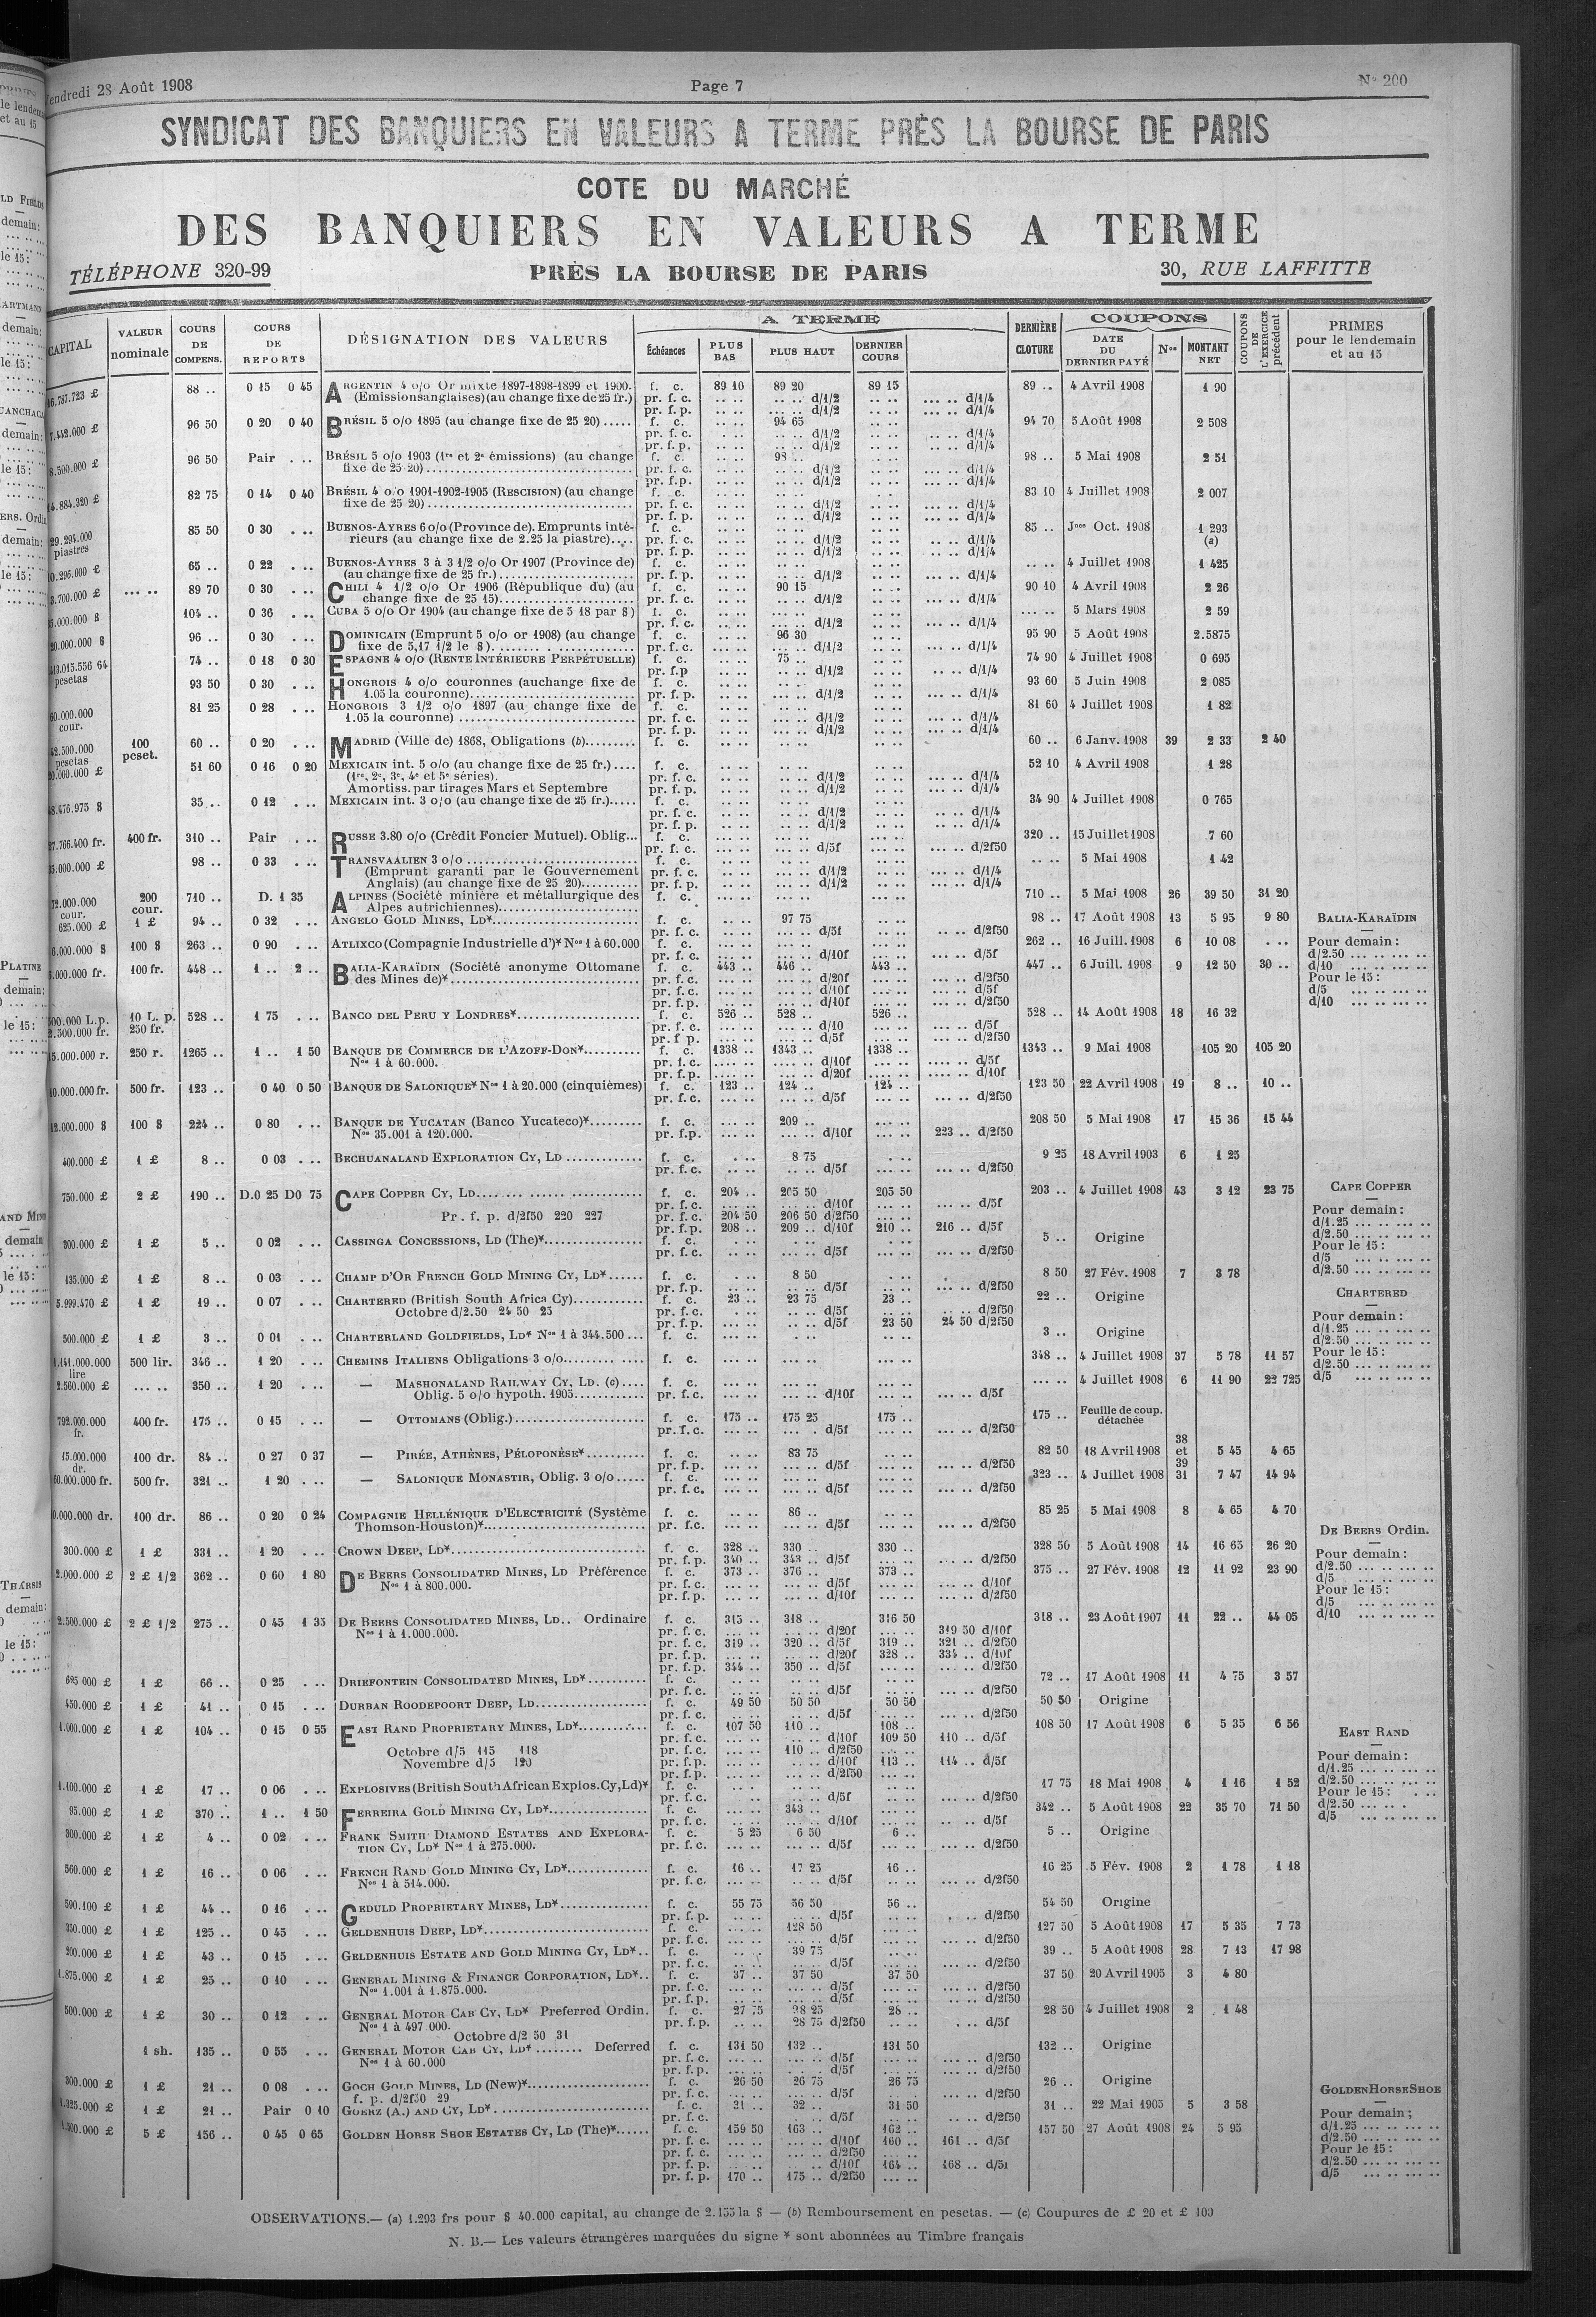 Vendredi 28 Août 1908 Page 7 N° 200
SYNDICAT DES BANQUIERS EN VALEURS A TERME PRÈS LA BOURSE DE PARIS
COTE DU MARCHÉ
DES BANQUIERS EN VALEURS A TERME
TÉLÉPHONE 320-99 PRÈS LA BOURSE DE PARIS 30, RUE LAFFITTE
CAPITAL VALEUR nominale COURS DE COMPENS. COURS DE REPORTS DÉSIGNATION DES VALEURS A TERME Échéances PLUS BAS PLUS HAUT DERNIER COURS DERNIÈRE CLOTURE COUPONS DATE DU DERNIER PAYÉ Nos MONTANT NET COUPONS DE L'EXERCICE précédent PRIMES pour le lendemain et au 15
88 .. 0 15 0 45 ARGENTIN 4 o/o Or mixte 1897-1898-1899 et 1900. f. c. 89 10 89 20 89 15 89 .. 4 Avril 1908 1 90
(Emissions anglaises) (au change fixe de 25 fr.) pr. f. c. d/1/2 d/1/4
pr. f. p. d/1/2 d/1/4
96 50 0 20 0 40 BRÉSIL 5 o/o 1895 (au change fixe de 25 20) ..... f. c. 94 65 94 70 5 Août 1908 2 508
pr. f. c. d/1/2 d/1/4
pr. f. p. d/1/2 d/1/4
8.500.000 £ 96 50 Pair . .. BRÉSIL 5 o/o 1903 (1re et 2e émissions) (au change f. c. 98 .. 98 .. 5 Mai 1908 2 51
fixe de 25 20) pr. f. c. d/1/2 d/1/4
pr. f.p. d/1/2 d/1/4
82 75 0 14 0 40 BRÉSIL 4 o/o 1901-1902-1905 (RESCISION) (au change f. c. 83 10 4 Juillet 1908 2 007
fixe de 25 20) pr. f. c. d/1/2 d/1/4
pr. f. p. d/1/2 d/1/4
29.294.000 piastres 85 50 0 30 . .. BUENOS-AYRES 6 o/o (Province de). Emprunts inté- f. c. 85 .. Jnce Oct. 1908 1 293 (a)
rieurs (au change fixe de 2.25 la piastre).... pr. f. c. d/1/2 d/1/4
pr. f. p. d/1/2 d/1/4
65 .. 0 22 . .. BUENOS-AYRES 3 à 3 1/2 o/o Or 1907 (Province de) f. c. 4 Juillet 1908 1 425
(au change fixe de 25 fr.) pr. f. p. d/1/2 d/1/4
89 70 0 30 . .. CHILI 4 1/2 o/o Or 1906 (République du) (au f. c. 90 15 90 10 4 Avril 1908 2 26
change fixe de 25 15) pr. f. c. d/1/2 d/1/4
104 .. 0 36 . .. CUBA 5 o/o Or 1904 (au change fixe de 5 18 par $) f. c. 5 Mars 1908 2 59
pr. f. c. d/1/2 d/1/4
96 .. 0 30 . .. DOMINICAIN (Emprunt 5 o/o or 1908) (au change f. c. 96 30 95 90 5 Août 1908 2.5875
fixe de 5,17 1/2 le $) pr. f. c. d/1/2 d/1/4
pesetas 74 .. 0 18 0 30 ESPAGNE 4 o/o (RENTE INTÉRIEURE PERPÉTUELLE) f. c. 75 .. 74 90 4 Juillet 1908 0 695
pr. f.p d/1/2 d/1/4
93 50 0 30 . .. HONGROIS 4 o/o couronnes (au change fixe de f. c. 93 60 5 Juin 1908 2 085
1.05 la couronne) pr. f. p. d/1/2 d/1/4
60.000.000 cour. 81 25 0 28 . .. HONGROIS 3 1/2 o/o 1897 (au change fixe de f. c. 81 60 4 Juillet 1908 1 82
1.05 la couronne) pr. f. c. d/1/2 d/1/4
pr. f. p. d/1/2 d/1/4
42.500.000 pesetas 100 peset. 60 .. 0 20 . .. MADRID (Ville de) 1868, Obligations (b) f. c. 60 .. 6 Janv. 1908 39 2 33 2 40
51 60 0 16 0 20 MEXICAIN int. 5 o/o (au change fixe de 25 fr.) .... f. c. 52 10 4 Avril 1908 1 28
(1re, 2e, 3e, 4e et 5e séries). pr. f. c. d/1/2 d/1/4
Amortiss. par tirages Mars et Septembre pr. f. p. d/1/2 d/1/4
35 .. 0 12 . .. MEXICAIN int. 3 o/o (au change fixe de 25 fr.)..... f. c. 34 90 4 Juillet 1908 0 765
pr. f. c. d/1/2 d/1/4
pr. f. p. d/1/2 d/1/4
400 fr. 310 .. Pair . .. RUSSE 3.80 o/o (Crédit Foncier Mutuel). Oblig... f. c. 320 .. 15 Juillet 1908 7 60
pr. f. c. d/5f d/2f50
98 .. 0 33 . .. TRANSVAALIEN 3 o/o f. c. 5 Mai 1908 1 42
(Emprunt garanti par le Gouvernement pr. f. c. d/1/2 d/1/4
Anglais) (au change fixe de 25 20) pr. f. p. d/1/2 d/1/4
72.000.000 cour. 200 cour. 710 .. D. 1 35 ALPINES (Société minière et métallurgique des f. c. 710 .. 5 Mai 1908 26 39 50 31 20
Alpes autrichiennes)
625.000 £ 1 £ 94 .. 0 32 . .. ANGELO GOLD MINES, LD* f. c. 97 75 98 .. 17 Août 1908 13 5 95 9 80 BALIA-KARAÏDIN
pr. f. c. d/5f d/2f50
6.000.000 $ 100 $ 263 .. 0 90 . .. ATLIXCO (Compagnie Industrielle d')* Nos 1 à 60.000 f. c. 262 .. 16 Juill. 1908 6 10 08 . .. Pour demain :
pr. f. c. d/10f d/5f d/2.50
100 fr. 448 .. 1 .. 2 .. BALIA-KARAÏDIN (Société anonyme Ottomane f. c. 443 .. 446 .. 443 .. 447 .. 6 Juill. 1908 9 12 50 30 .. d/10
des Mines de)* pr. f. c. d/20f d/2f50 Pour le 15 :
pr. f. c. d/10f d/5f d/5
pr. f. p. d/10f d/2f50 d/10
10 L. p. 250 fr. 528 .. 1 75 . .. BANCO DEL PERU Y LONDRES* f. c. 526 .. 528 .. 526 .. 528 .. 14 Août 1908 18 16 32
pr. f. c. d/10 d/5f
pr. f p. d/5f d/2f50
250 r. 1265 .. 1 .. 1 50 BANQUE DE COMMERCE DE L'AZOFF-DON* f. c. 1338 .. 1343 .. 1338 .. 1343 .. 9 Mai 1908 105 20 105 20
Nos 1 à 60.000. pr. f. c. d/10f d/5f
pr. f. p. d/20f d/10f
500 fr. 123 .. 0 40 0 50 BANQUE DE SALONIQUE* Nos 1 à 20.000 (cinquièmes) f. c. 123 .. 124 .. 124 .. 123 50 22 Avril 1908 19 8 .. 10 ..
pr. f. c. d/5f d/2f50
100 $ 224 .. 0 80 . .. BANQUE DE YUCATAN (Banco Yucateco)* f. c. 209 .. 208 50 5 Mai 1908 17 15 36 15 44
Nos 35.001 à 120.000. pr. f.p. d/10f 223 .. d/2f50
400.000 £ 1 £ 8 .. 0 03 . .. BECHUANALAND EXPLORATION CY, LD f. c. 8 75 9 25 18 Avril 1903 6 1 25
pr. f. c. d/5f d/2f50
750.000 £ 2 £ 190 .. D.0 25 D0 75 CAPE COPPER CY, LD f. c. 204 .. 205 50 205 50 203 .. 4 Juillet 1908 43 3 12 23 75 CAPE COPPER
pr. f. c. d/10f d/5f Pour demain :
Pr. f. p. d/2f50 220 227 pr. f. c. 204 50 206 50 d/2f50 d/1.25
pr. f. p. 208 .. 209 .. d/10f 210 .. 216 .. d/5f d/2.50
300.000 £ 1 £ 5 .. 0 02 . .. CASSINGA CONCESSIONS, LD (The)* f. c. 5 .. Origine Pour le 15 :
pr. f. c. d/5f d/2f50 d/5
135.000 £ 1 £ 8 .. 0 03 . .. CHAMP D'OR FRENCH GOLD MINING CY, LD* f. c. 8 50 8 50 27 Fév. 1908 7 3 78 d/2.50
pr. f. p. d/5f d/2f50
5.999.470 £ 1 £ 19 .. 0 07 . .. CHARTERED (British South Africa Cy) f. c. 23 .. 23 75 23 .. 22 .. Origine CHARTERED
Octobre d/2.50 24 50 25 pr. f. c. d/5f d/2f50 Pour demain :
pr. f. p. d/5f 23 50 24 50 d/2f50 d/1.25
500.000 £ 1 £ 3 .. 0 01 . .. CHARTERLAND GOLDFIELDS, LD* Nos 1 à 344.500 ... f. c. 3 .. Origine d/2.50
lire 500 lir. 346 .. 1 20 . .. CHEMINS ITALIENS Obligations 3 o/o f. c. 348 .. 4 Juillet 1908 37 5 78 11 57 Pour le 15 :
2.560.000 £ 350 .. 1 20 . .. — MASHONALAND RAILWAY CY, LD. (c) f. c. 4 Juillet 1908 6 11 90 22 725 d/2.50
Oblig. 5 o/o hypoth. 1905 pr. f. c. d/10f d/5f d/5
792.000.000 fr. 400 fr. 175 .. 0 15 . .. — OTTOMANS (Oblig.) f. c. 175 .. 175 25 175 .. 175 .. Feuille de coup. détachée
pr. f. c. d/5f d/2f50
15.000.000 dr. 100 dr. 84 .. 0 27 0 37 — PIRÉE, ATHÈNES, PÉLOPONÈSE* f. c. 83 75 82 50 18 Avril 1908 38 et 39 5 45 4 65
pr. f. p. d/5f d/2f50
60.000.000 fr. 500 fr. 321 .. 1 20 . .. — SALONIQUE MONASTIR, Oblig. 3 o/o f. c. 323 .. 4 Juillet 1908 31 7 47 14 94
pr. f. c. d/5f d/2f50
100 dr. 86 .. 0 20 0 24 COMPAGNIE HELLÉNIQUE D'ELECTRICITÉ (Système f. c. 86 .. 85 25 5 Mai 1908 8 4 65 4 70
Thomson-Houston)* pr. f.c. d/5f d/2f50
300.000 £ 1 £ 331 .. 1 20 . .. CROWN DEEP, LD* f. c. 328 .. 330 .. 330 .. 328 50 5 Août 1908 14 16 65 26 20 DE BEERS Ordin.
pr. f. p. 340 .. 343 .. d/5f d/2f50 Pour demain :
2.000.000 £ 2 £ 1/2 362 .. 0 60 1 80 DE BEERS CONSOLIDATED MINES, LD Préférence f. c. 373 .. 376 .. 373 .. 375 .. 27 Fév. 1908 12 11 92 23 90 d/2.50
Nos 1 à 800.000. pr. f. c. d/5f d/10f d/5
pr. f. p. d/10f d/2f50 Pour le 15 :
2.500.000 £ 2 £ 1/2 275 .. 0 45 1 35 DE BEERS CONSOLIDATED MINES, LD.. Ordinaire f. c. 315 .. 318 .. 316 50 318 .. 23 Août 1907 11 22 .. 44 05 d/5
Nos 1 à 1.000.000. pr. f. c. d/20f 319 50 d/10f d/10
pr. f. c. 319 .. 320 .. d/5f 319 .. 321 .. d/2f50
pr. f. p. d/20f 328 .. 334 .. d/10f
pr. f. p. 344 .. 350 .. d/5f d/2f50
625 000 £ 1 £ 66 .. 0 25 . .. DRIEFONTEIN CONSOLIDATED MINES, LD* f. c. 72 .. 17 Août 1908 11 4 75 3 57
pr. f. c. d/5f d/2f50
450.000 £ 1 £ 41 .. 0 15 . .. DURBAN ROODEPOORT DEEP, LD f. c. 49 50 50 50 50 50 50 50 Origine
pr. f. c. d/5f d/2f50
1.000.000 £ 1 £ 104 .. 0 15 0 55 EAST RAND PROPRIETARY MINES, LD* f. c. 107 50 110 .. 108 .. 108 50 17 Août 1908 6 5 35 6 56 EAST RAND
pr. f. c. d/10f 109 50 110 .. d/5f
Octobre d/5 115 118 pr. f. c. 110 .. d/2f50 Pour demain :
Novembre d/5 120 pr. f. p. d/10f 113 .. 114 .. d/5f d/1.25
pr. f. p. d/2f50
1.100.000 £ 1 £ 17 .. 0 06 . .. EXPLOSIVES (British South African Explos. Cy, Ld)* f. c. 17 75 18 Mai 1908 4 1 16 1 52 d/2.50
pr. f. c. d/5f d/2f50 Pour le 15 :
95.000 £ 1 £ 370 .. 1 .. 1 50 FERREIRA GOLD MINING CY, LD* f. c. 343 .. 342 .. 5 Août 1908 22 35 70 71 50 d/2.50
pr. f. c. d/10f d/5f d/5
300.000 £ 1 £ 4 .. 0 02 . .. FRANK SMITH DIAMOND ESTATES AND EXPLORA- f. c. 5 25 6 50 6 .. 5 .. Origine
TION CY, LD* Nos 1 à 275.000. pr. f. c. d/5f d/2f50
560.000 £ 1 £ 16 .. 0 06 . .. FRENCH RAND GOLD MINING CY, LD* f. c. 16 .. 17 25 16 .. 16 25 5 Fév. 1908 2 1 78 1 18
Nos 1 à 514.000. pr. f. c. d/5f d/2f50
590.100 £ 1 £ 44 .. 0 16 . .. GEDULD PROPRIETARY MINES, LD* f. c. 55 75 56 50 56 .. 54 50 Origine
pr. f. p. d/5f d/2f50
350.000 £ 1 £ 125 .. 0 45 . .. GELDENHUIS DEEP, LD* f. c. 128 50 127 50 5 Août 1908 17 5 35 7 73
pr. f. c. d/5f d/2f50
200.000 £ 1 £ 43 .. 0 15 . .. GELDENHUIS ESTATE AND GOLD MINING CY, LD* .. f. c. 39 75 39 .. 5 Août 1908 28 7 13 17 98
pr. f. c. d/5f d/2f50
1.875.000 £ 1 £ 25 .. 0 10 . .. GENERAL MINING & FINANCE CORPORATION, LD* .. f. c. 37 .. 37 50 37 50 37 50 20 Avril 1905 3 4 80
Nos 1.001 à 1.875.000. pr. f. c. d/5f d/2f50
pr. f. p. d/5f d/2f50
500.000 £ 1 £ 30 .. 0 12 . .. GENERAL MOTOR CAB CY, LD* Preferred Ordin. f. c. 27 75 28 25 28 .. 28 50 4 Juillet 1908 2 1 48
Nos 1 à 497 000. pr. f. p. 28 75 d/2f50 d/5f
Octobre d/2 50 31
1 sh. 135 .. 0 55 . .. GENERAL MOTOR CAB CY, LD* Deferred f. c. 131 50 132 .. 131 50 132 .. Origine
Nos 1 à 60.000 pr. f. c. d/5f d/2f50
pr. f. p. d/5f d/2f50
300.000 £ 1 £ 21 .. 0 08 . .. GOCH GOLD MINES, LD (New)* f. c. 26 50 26 75 26 75 26 .. Origine GOLDEN HORSE SHOE
f. p. d/2f50 29 pr. f. c. d/5f d/2f50
1.325.000 £ 1 £ 21 .. Pair 0 10 GOERZ (A.) AND CY, LD* f. c. 31 .. 32 .. 31 50 31 .. 22 Mai 1905 5 3 58 Pour demain ;
pr. f. c. d/5f d/2f50 d/1.25
1.500.000 £ 5 £ 156 .. 0 45 0 65 GOLDEN HORSE SHOE ESTATES CY, LD (The)* f. c. 159 50 163 .. 162 .. 157 50 27 Août 1908 24 5 95 d/2.50
pr. f. c. d/10f 160 .. 161 .. d/5f Pour le 15 :
pr. f. c. d/2f50 d/2.50
pr. f. p. d/10f 164 .. 168 .. d/5f d/5
pr. f. p. 170 .. 175 .. d/2f50
OBSERVATIONS.— (a) 1.293 frs pour $ 40.000 capital, au change de 2.155 la $ — (b) Remboursement en pesetas. — (c) Coupures de £ 20 et £ 100
N. B.— Les valeurs étrangères marquées du signe * sont abonnées au Timbre français